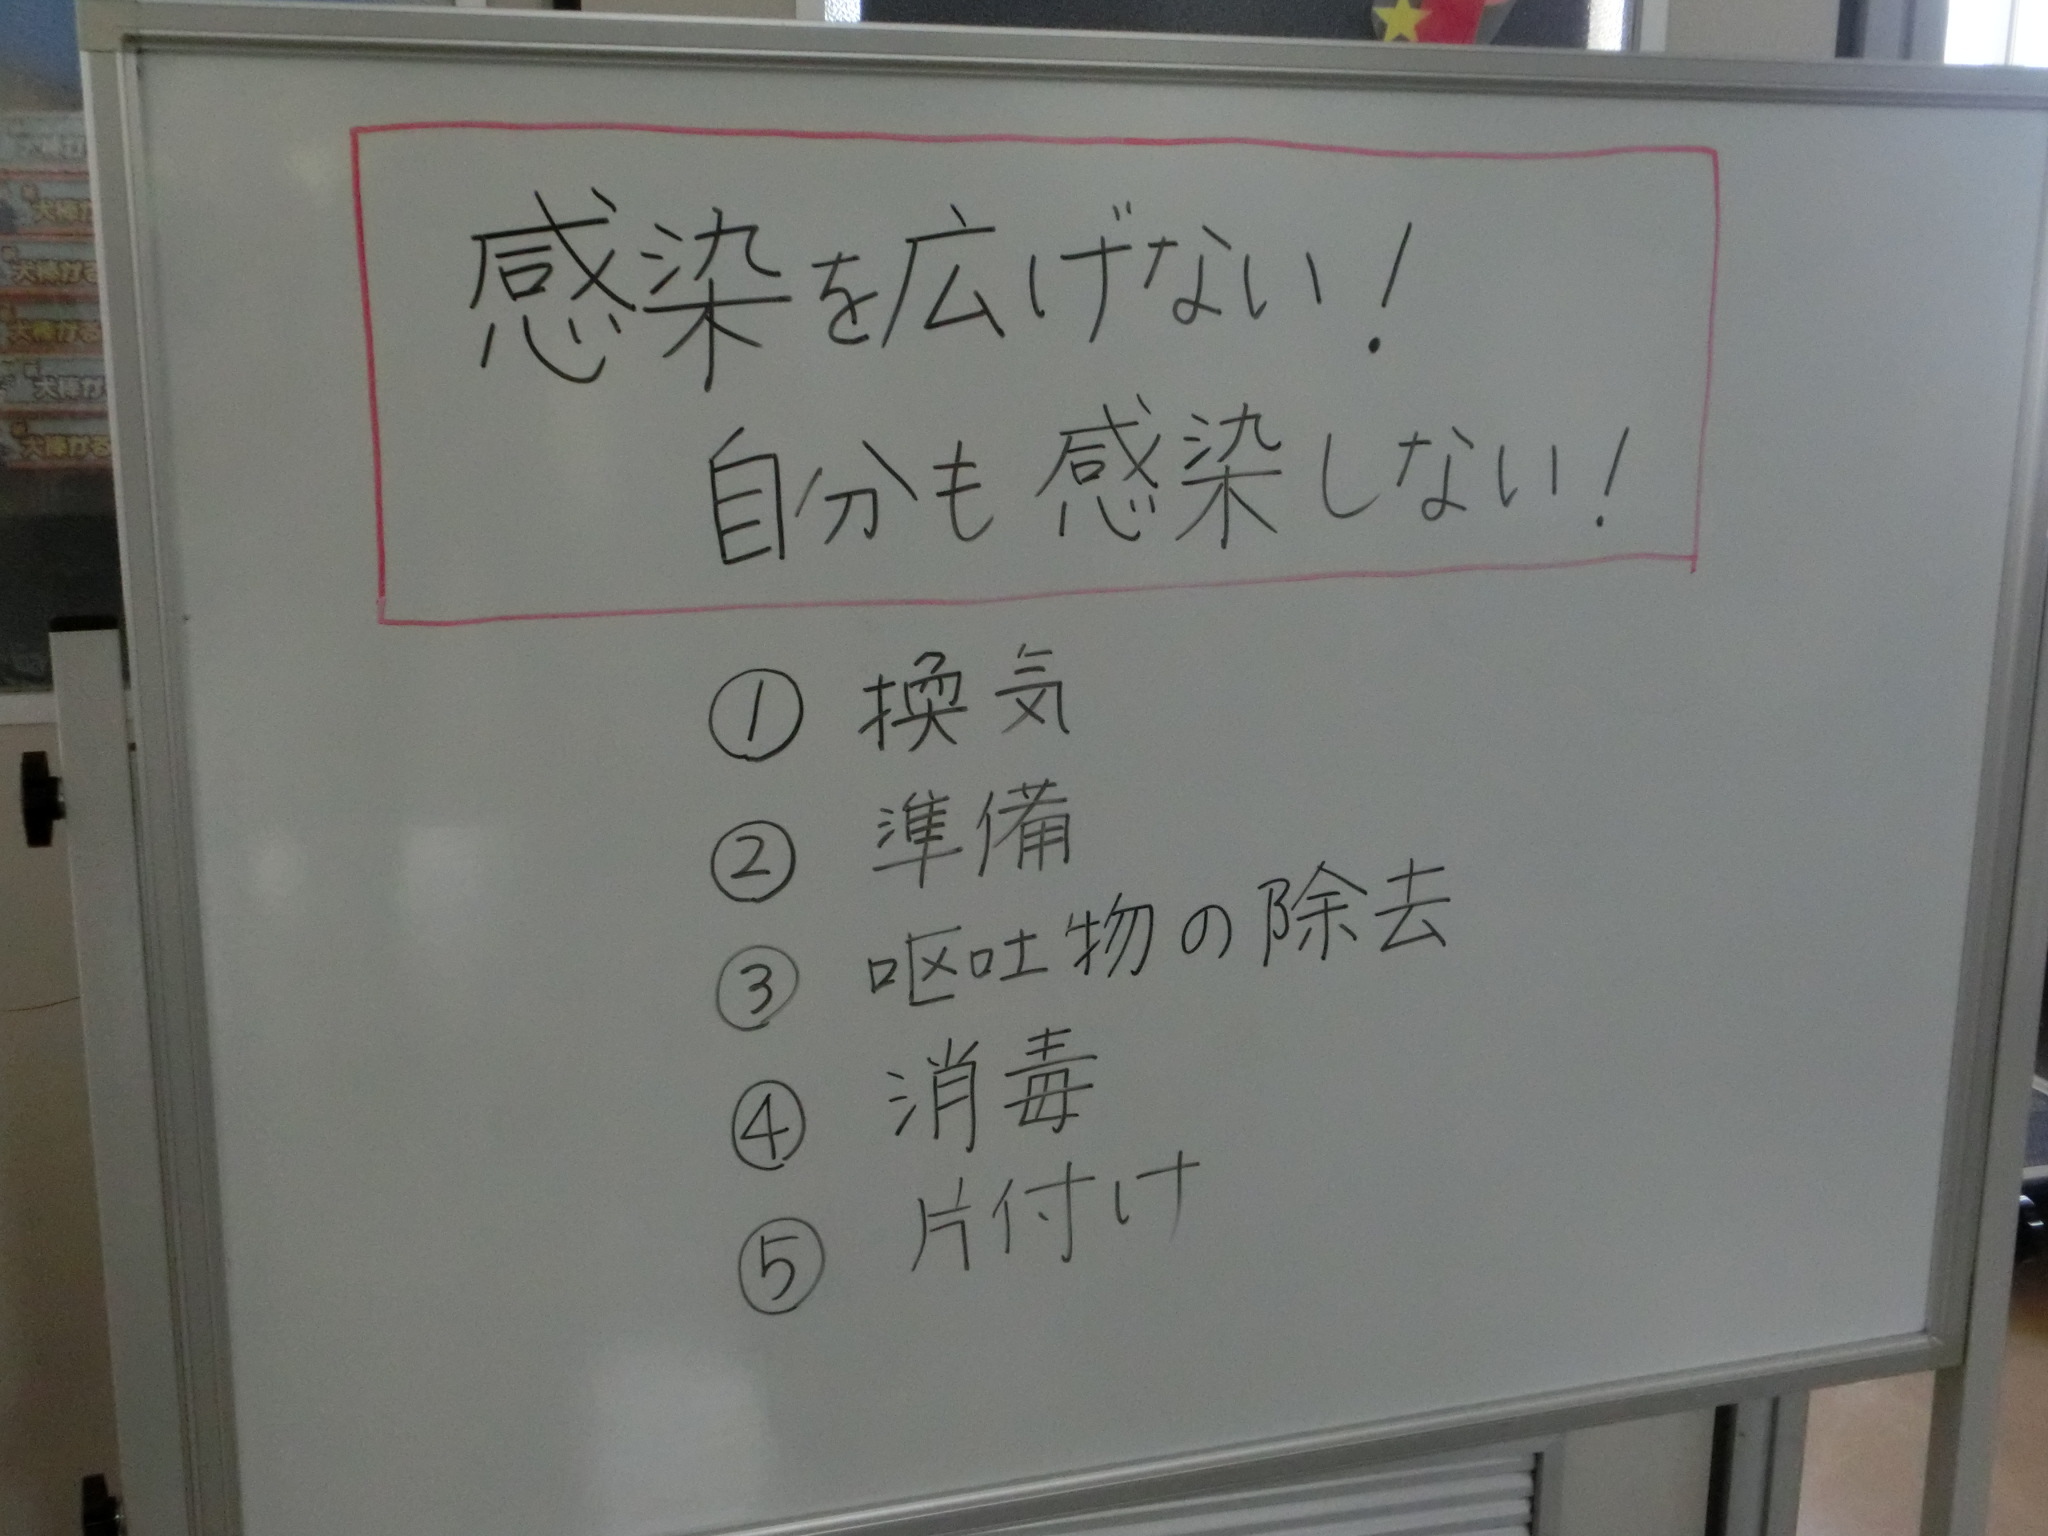 感染を広げない!
自分も感染しない!
① 換気
② 準備
③ 呕吐物の除去
④ 消毒
⑤ 片付け